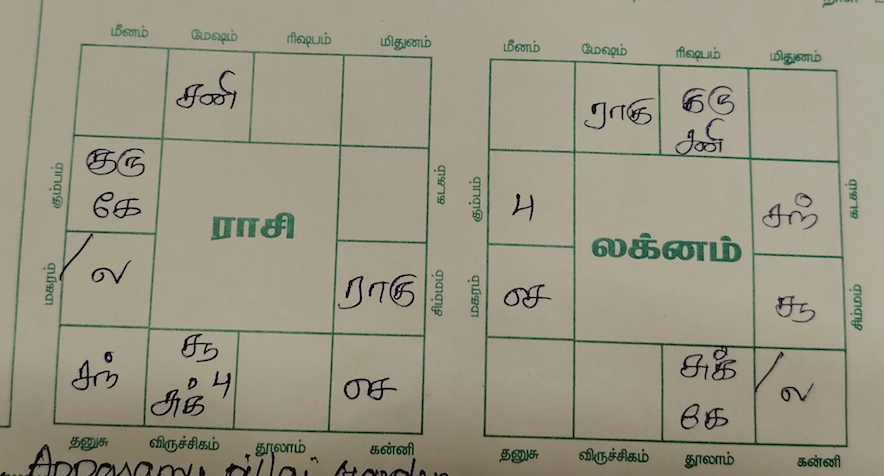 மீனம் மேஷம் ரிஷபம் மிதுனம்
சனி
குரு
கே
கும்பம்
கடகம்
ராசி
ல
மகரம்
ராகு
சிம்மம்
சந்
சூ
சுக் பு
செ
தனுசு விருச்சிகம் தூலாம் கன்னி
மீனம் மேஷம் ரிஷபம் மிதுனம்
ராகு
குரு
சனி
கும்பம்
பு
சந்
கடகம்
லக்னம்
மகரம்
செ
சூ
சிம்மம்
சுக்
கே
ல
தனுசு விருச்சிகம் தூலாம் கன்னி